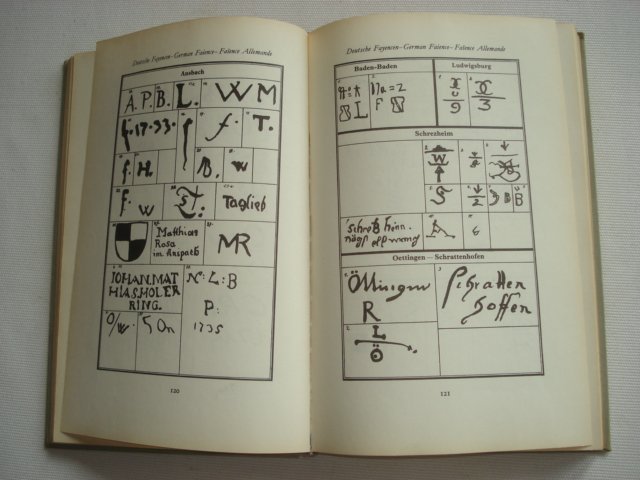 Deutsche Fayencen–German Faience–Faïence Allemande
Ansbach
A. P. B. L. W M
f. 17.33. f. T.
f. H. B. W
f. W T. Taglieb
Matthias
Rosa
im Anspach
MR
IOHAN. MAT
HIAS HOLER
RING.
N: L: B
P:
1735
120
Deutsche Fayencen–German Faience–Faïence Allemande
Baden-Baden
Ludwigsburg
9
3
Schrezheim
W
2
B
Oettingen — Schrattenhofen
Öttingen
R
Schratten
hoffen
L
Ö
121